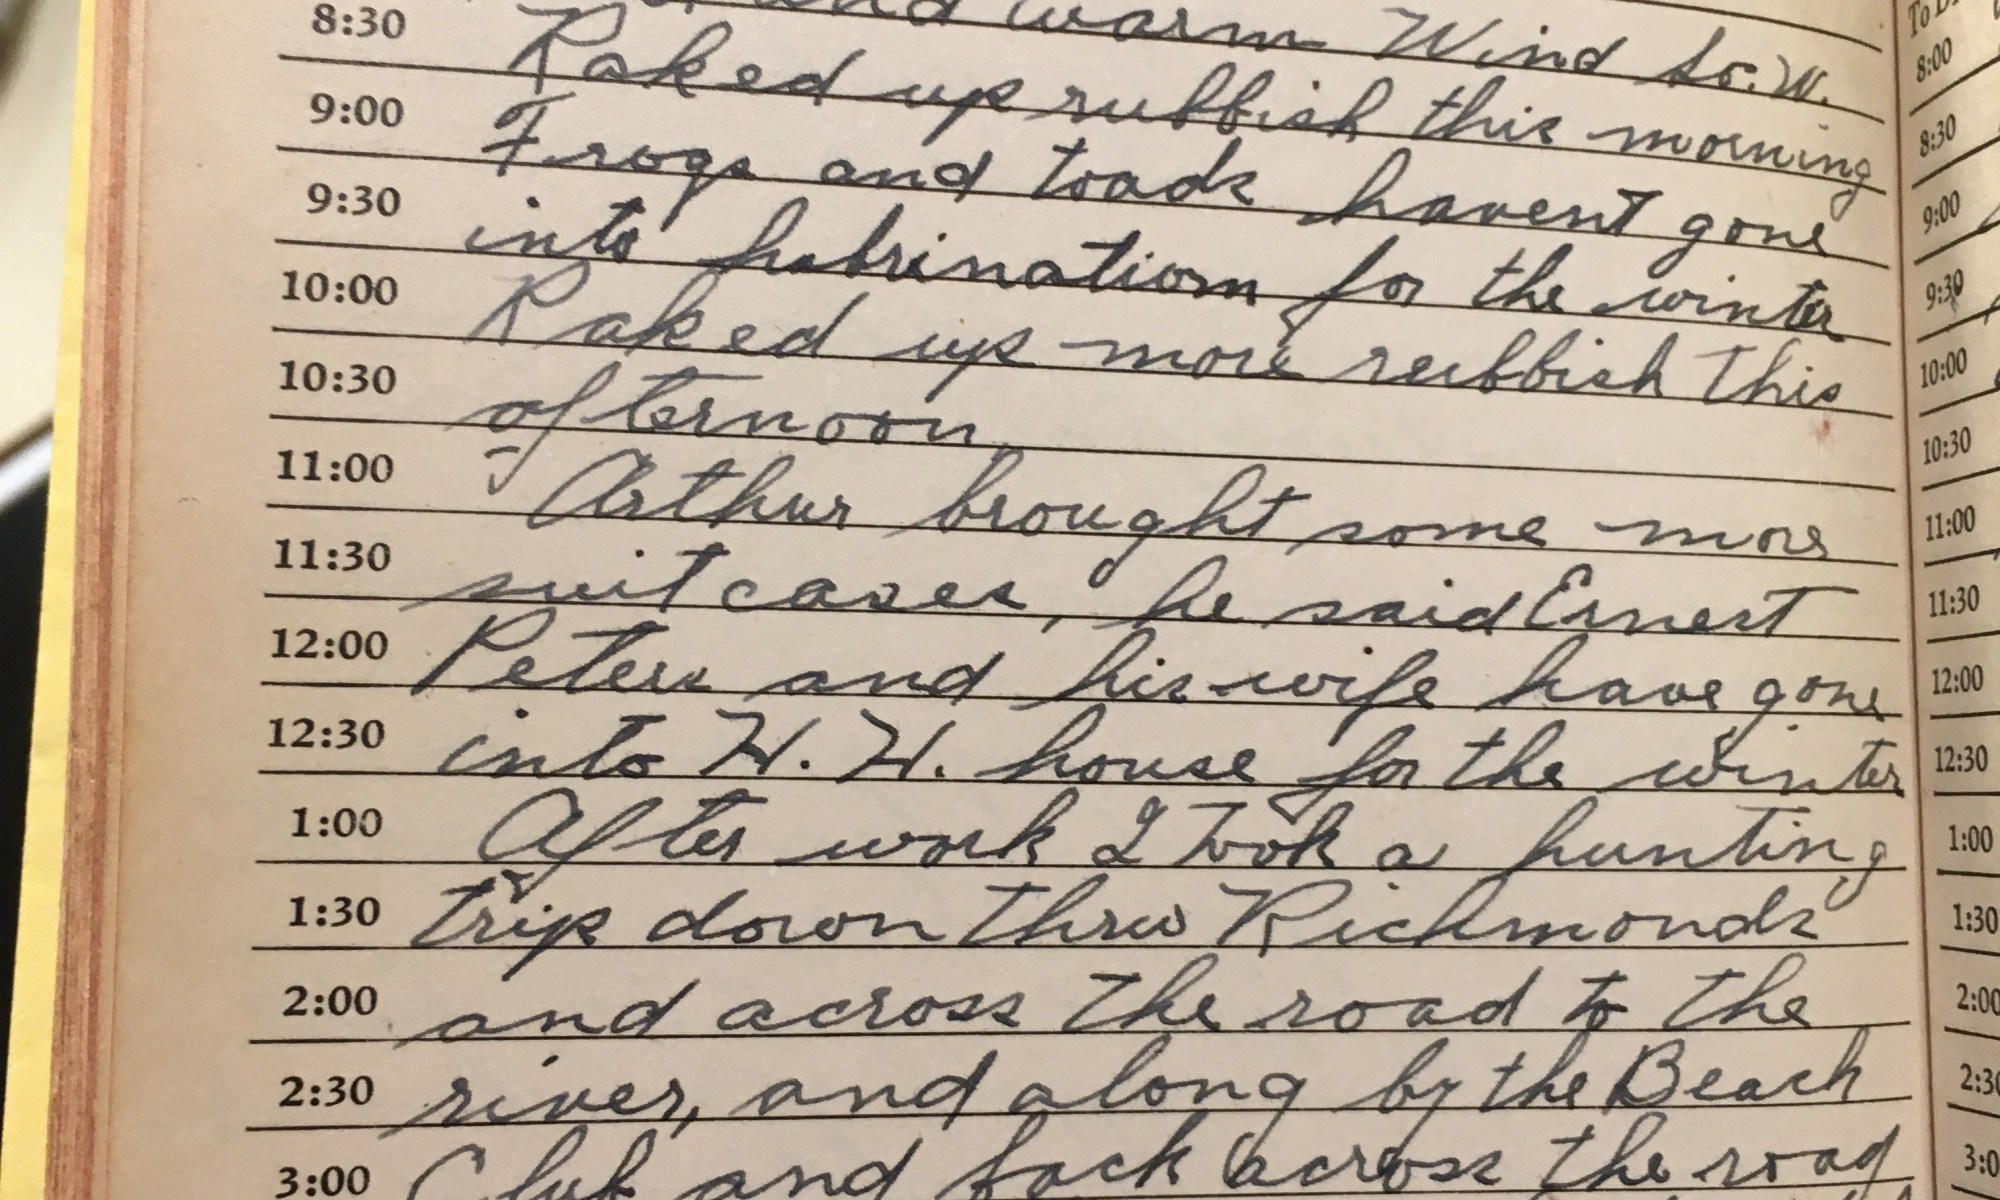 and warm Wind So. W.
8:30 Raked up rubbish this morning
9:00 Frogs and toads havent gone
9:30 into hubrination for the winter
10:00 Raked up more rubbish this
10:30 afternoon.
11:00 Arthur brought some more
11:30 suit cases, he said Ernest
12:00 Peters and his wife have gone
12:30 into H. H. house for the winter
1:00 After work I took a hunting
1:30 trip down thru Richmonds
2:00 and across the road to the
2:30 river, and along by the Beach
3:00 Club and back across the road
8:00
8:30
9:00
9:30
10:00
10:30
11:00
11:30
12:00
12:30
1:00
1:30
2:00